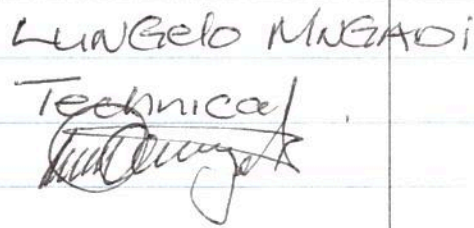 LUNGelo MNGADi
Technical